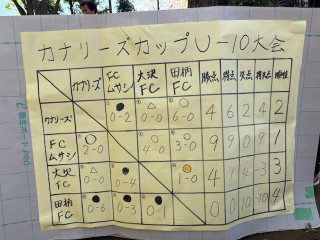 カナリーズカップU-10大会
カナリーズ FCムサシ 大沢FC 田柄FC 勝点 得点 失点 得失点 順位
カナリーズ ● 0-2 △ 0-0 ○ 6-0 4 6 2 4 2
FCムサシ ○ 2-0 ○ 4-0 ○ 3-0 9 9 0 9 1
大沢FC △ 0-0 ● 0-4 ○ 1-0 4 1 4 -3 3
田柄FC ● 0-6 ● 0-3 ● 0-1 0 0 10 -10 4